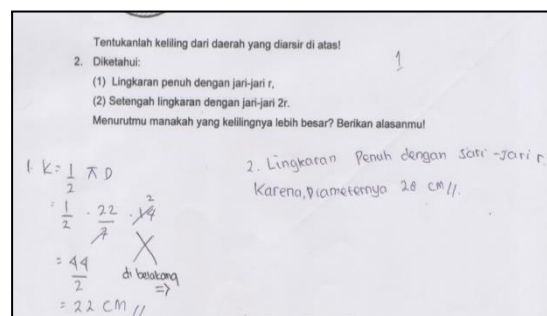 Tentukanlah keliling dari daerah yang diarsir di atas!
2. Diketahui:
(1) Lingkaran penuh dengan jari-jari r,
(2) Setengah lingkaran dengan jari-jari 2r.
Menurutmu manakah yang kelilingnya lebih besar? Berikan alasanmu!
1
1. K = 1/2 π D
= 1/2 · 22/7 · 14 2
= 44/2
= 22 cm //
X
di belakang
=>
2. Lingkaran Penuh dengan jari-jari r.
Karena, Diameternya 28 cm //.